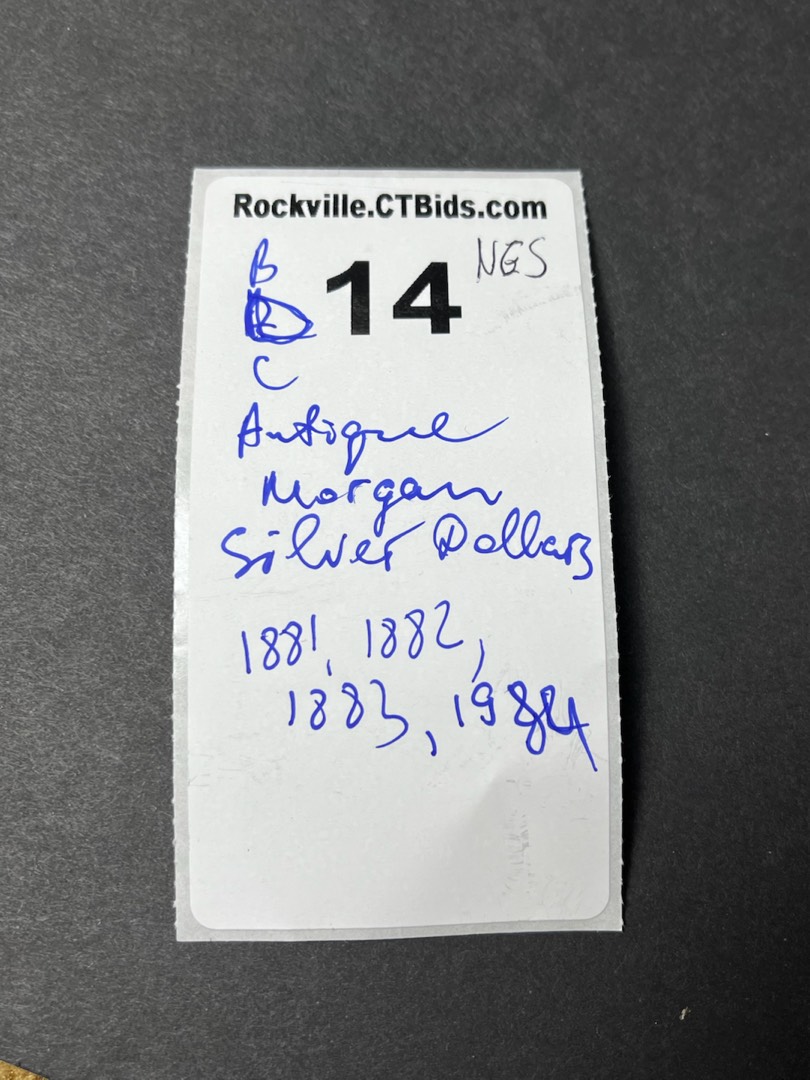 Rockville.CTBids.com
B
14
NGS
C
Antique
Morgan
Silver Dollars
1881, 1882,
1883, 1984